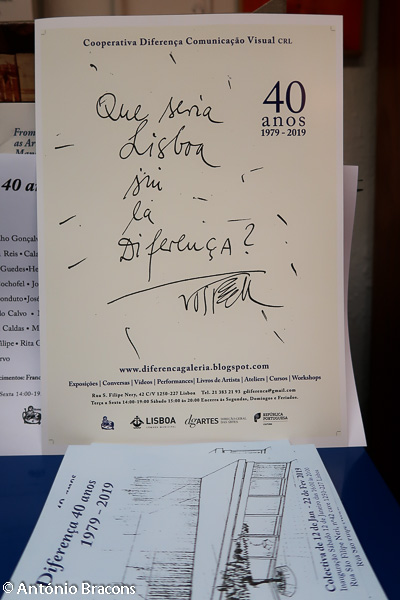 Cooperativa Diferença Comunicação Visual CRL
Que seria
Lisboa
sin
la
DiferençA?
40
anos
1979 - 2019
www.diferencagaleria.blogspot.com
Exposições | Conversas | Vídeos | Performances | Livros de Artista | Ateliers | Cursos | Workshops
Rua S. Filipe Nery, 42 C/V 1250-227 Lisboa Tel. 21 383 21 93 gdiferenca@gmail.com
Terça a Sexta 14:00-19:00 Sábado 15:00 às 20:00 Encerra às Segundas, Domingos e Feriados.
LISBOA
dgARTES
REPÚBLICA
PORTUGUESA
From
as Ar
40 a
Reis
Guedes
Caldas
Rita
Sexta 14:00
Diferença 40 anos
1979 - 2019
Colectiva de 12 de Jan - 22 de Fev 2019
© António Bracons